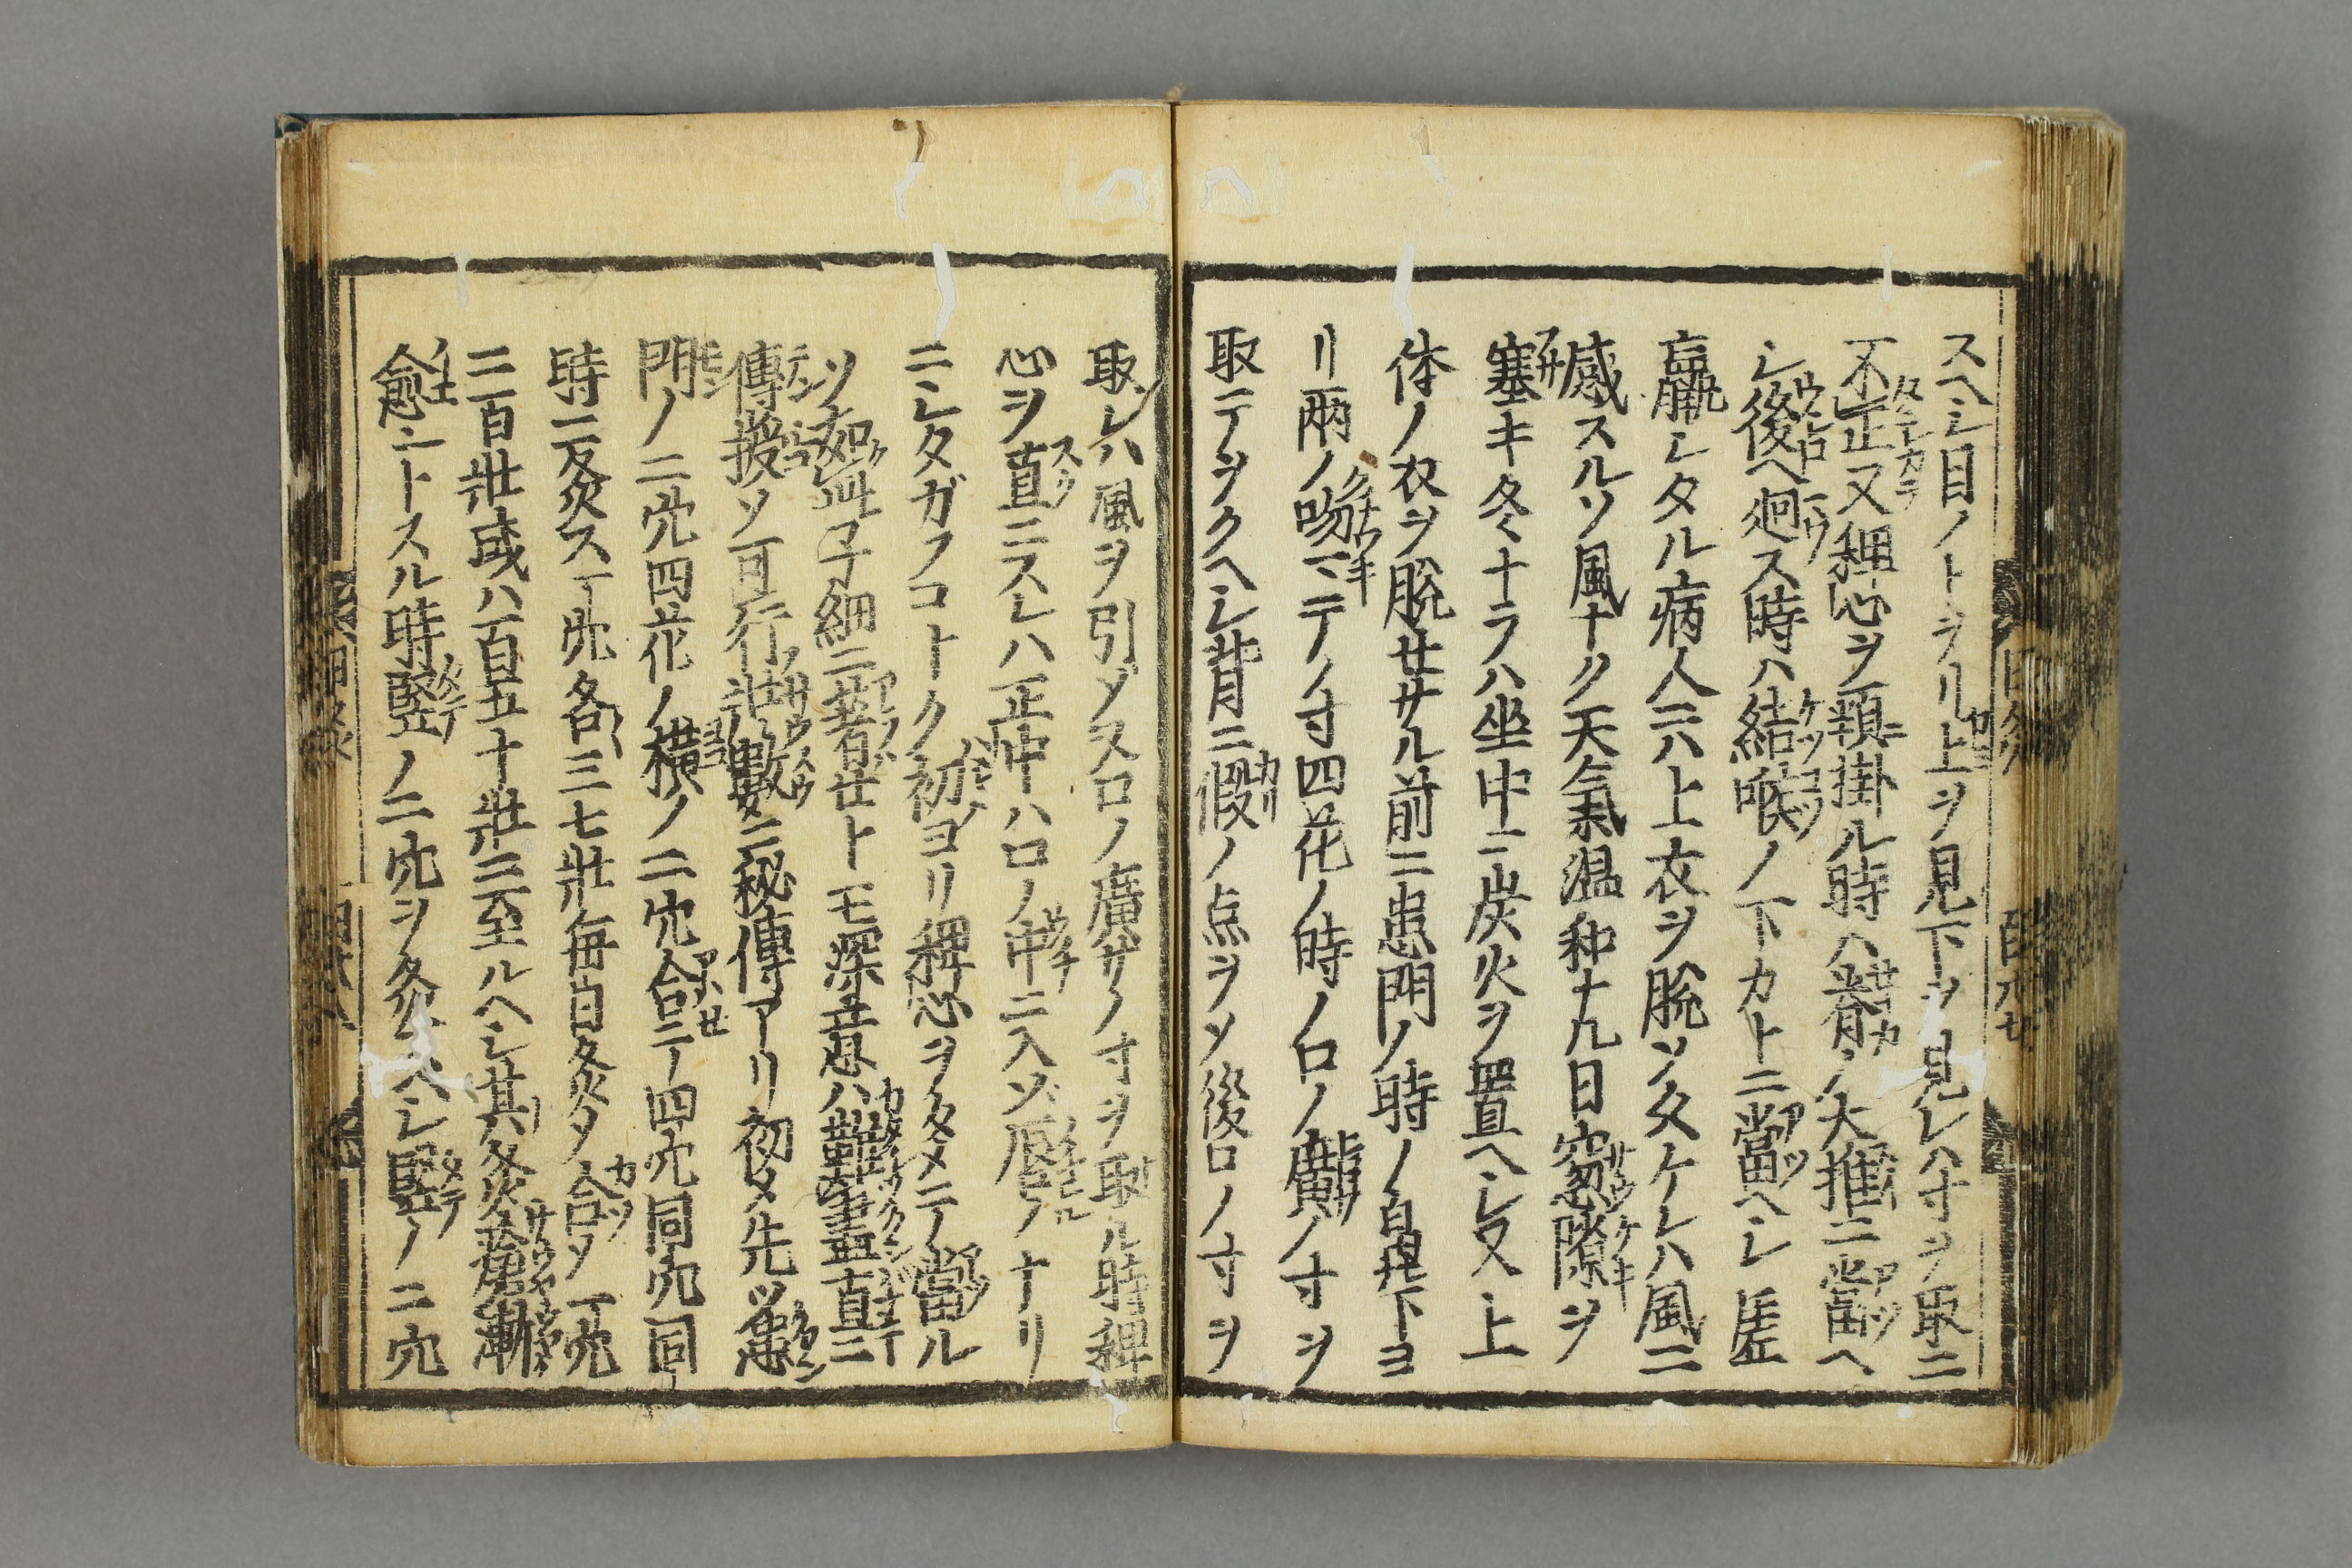 スヘシ目ノトヲリ上ヲ見下ヲ見レハ寸ヲ取ニ
不正又稗心ヲ頸ニ掛ル時ハ脊ノ大推ニ當ヘ
シ後ヘ廻ス時ハ結喉ノ下カトニ當ヘシ尫
羸シタル病人ニハ上衣ヲ脱ソ久ケレハ風ニ
感スルソ風ナク天氣温和ナル日窓隙ヲ
塞キ冬ナラハ坐中ニ炭火ヲ置ヘシ又上
体ノ衣ヲ脱せサル前ニ患門ノ時ノ鼻下ヨ
リ兩ノ吻ニテノ寸四花ノ時ノ口ノ廣ノ寸ヲ
取テヲクヘシ背ニ假ノ点ヲソ後口ノ寸ヲ
取レハ風ヲ引ダス口ノ廣サノ寸ヲ取ル時稗
心ヲ直ニスレハ正中ハ口ノ中ニ入ゾ唇ノナリ
ニシタガフコトク初ヨリ稗心ヲタメニテ當ル
ソ如此子細ニ著せトモ深意ハ難盡直ニ
傳授ソ可行壯數ニ秘傳アリ初メ先ツ患
門ノ二穴四花ノ横ノ二穴合テ四穴同穴同
時ニ灸ス一穴各三七壯毎日灸メ合ソ一穴
二百壯或ハ百五十壯ニ至ルヘシ其灸瘡漸
愈ニトスル時竪ノ二穴ヲ灸スヘシ竪ノ二穴